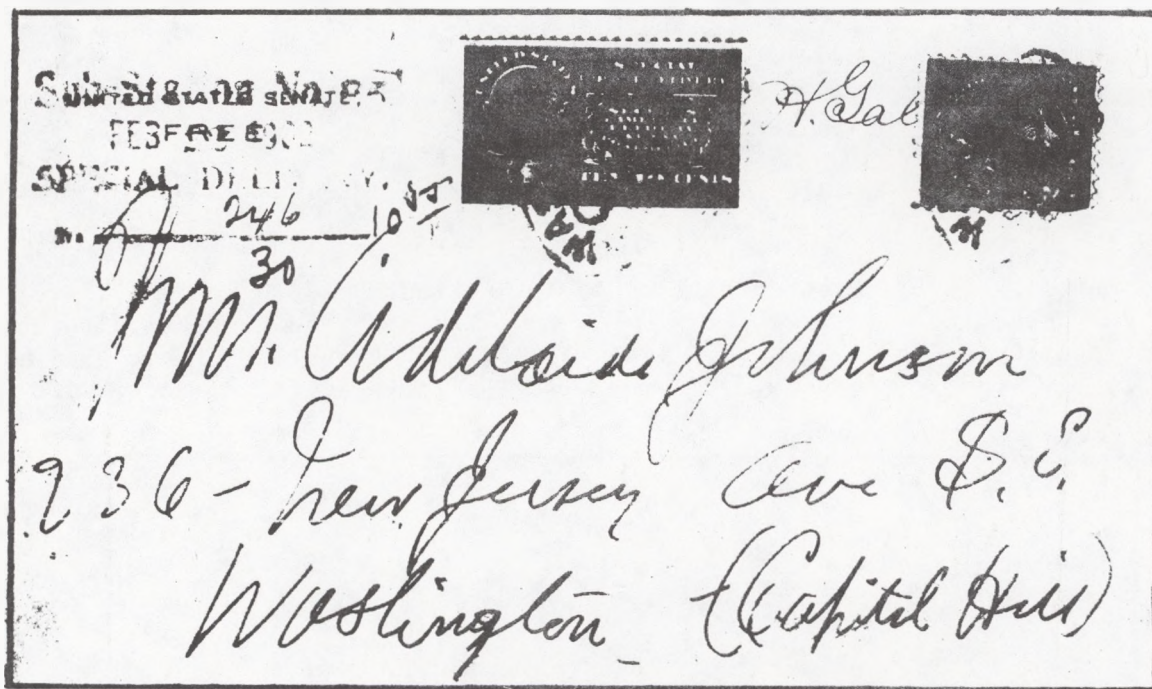 UNITED STATES SENATE.
FREE
SPECIAL
246
30
UNITED STATES
SPECIAL
TEN CENTS
H. Gal
Mrs. Adelaide Johnson
236 - New Jersey Ave S.E.
Washington - (Capitol Hill)